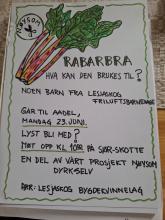 NØYSOM
RABARBRA
HVA KAN DEN BRUKES TIL?
NOEN BARN FRA LESJASKOG
FRILUFTSBARNEHAGE
GÅR TIL AADEL,
MANDAG 23. JUNI.
LYST BLI MED?
MØT OPP KL 1000 PÅ SØR-SKOTTE
EN DEL AV VÅRT PROSJEKT NØYSOM
DYRK SELV
ARR: LESJASKOG BYGDEKVINNELAG